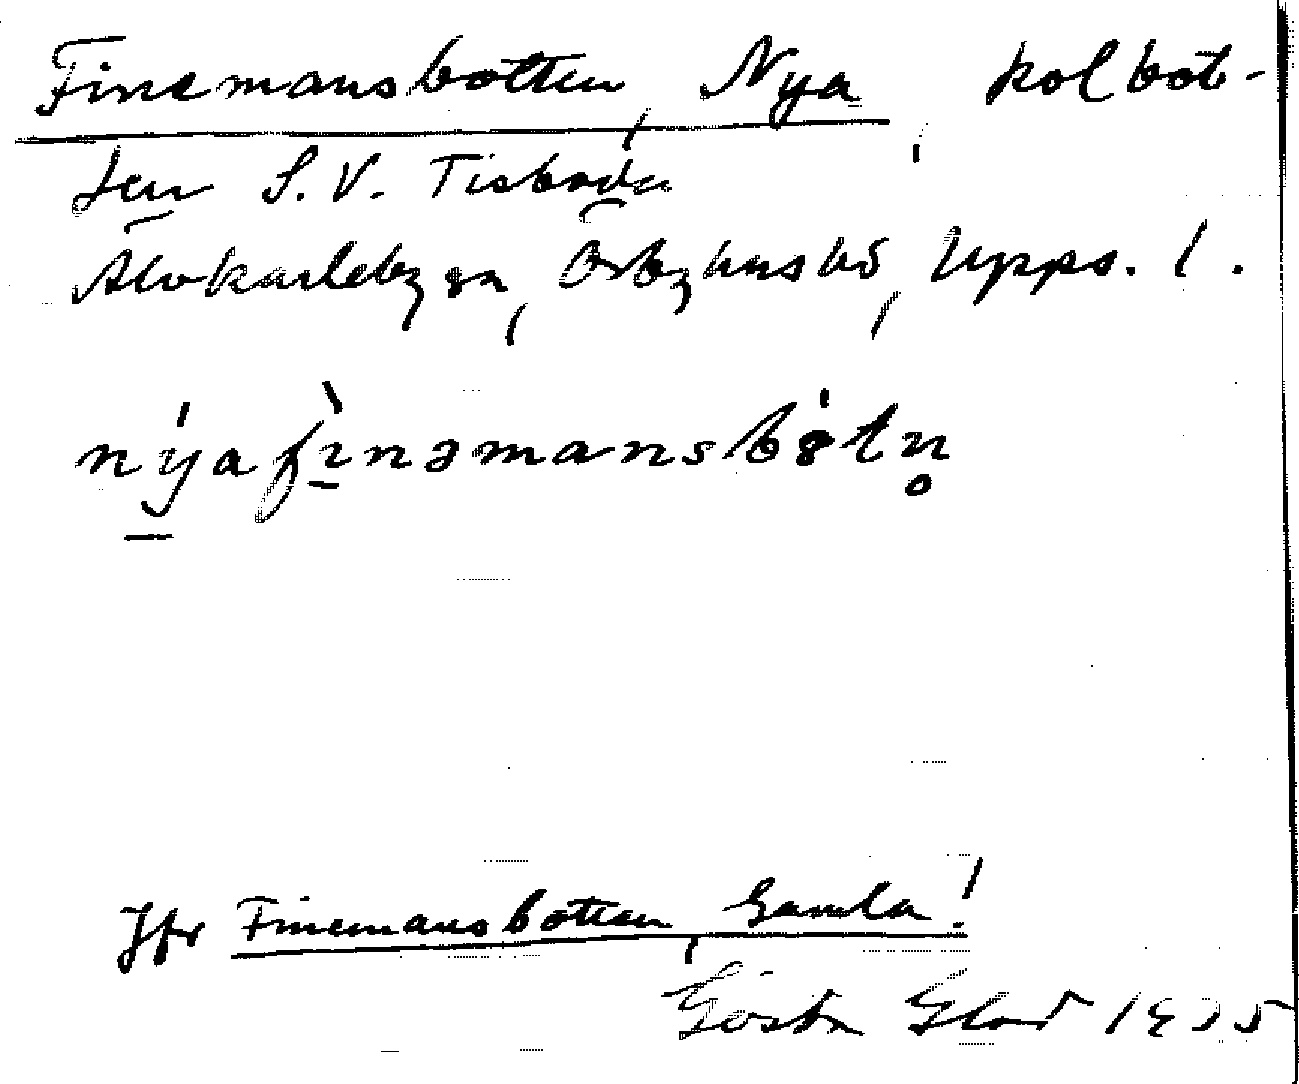 Finemansbotten, Nya, kolbot-
ten S.V. Tisboda
Älvkarleby sn, Örbyhus hd, Upps. l.
nýafìnəmansbòtn̥
Jfr Finemansbotten, Gamla!
Gösta 1935